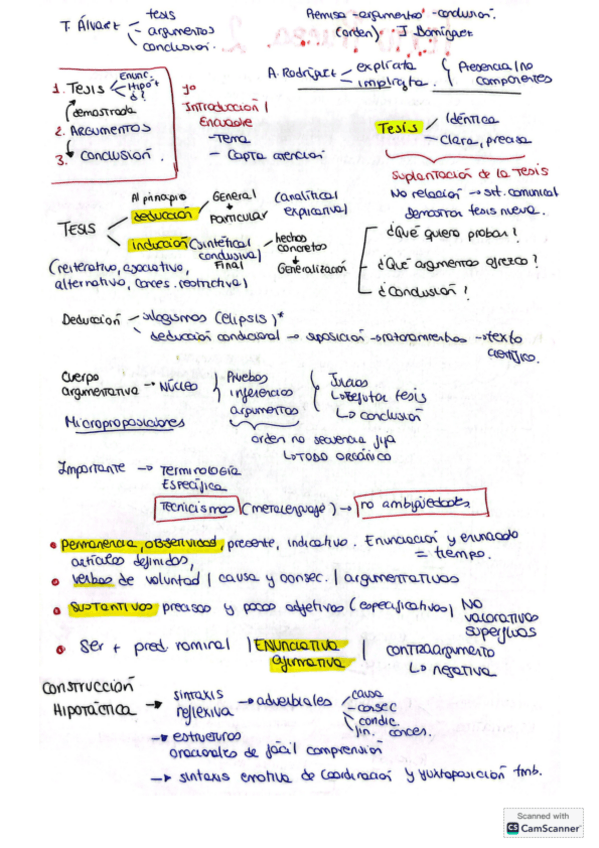 T. Álvarez tesis
argumentos
conclusion.
Premisa - argumento - conclusión.
(orden) J Domínguez
A. Rodríguez explícita
implícita.
Presencia / no
componentes
1. TESIS Enunc.
Hipót
d?
demostrada
2. ARGUMENTOS
3. CONCLUSIÓN.
Introducción /
Encuadre
- Tema
- Capta atención
TESIS Idéntica
- Clara, precisa
Suplantación de la TESIS
No relación → sit. comunicat
demostrar tesis nueva.
TESIS
Al principio
deducción General
Particular
(analítica /
explicativa)
inducción (sintética /
conclusiva)
Final
hechos
concretos
Generalización
(reiterativo, asociativo,
alternativo, conces. restrictiva)
- ¿Qué quiero probar?
- ¿Qué argumentos ofrezco?
- ¿Conclusión?
Deducción silogismos (elipsis)*
deducción condicional → suposición → razonamientos → texto
científico.
Cuerpo
argumentativo → NÚCLEO
Pruebas
inferencias
argumentos
Juicios
↳ Refutar tesis
↳ conclusión
Microproposiciones
orden no secuencia fija
↳ TODO ORGÁNICO
Importante → TERMINOLOGÍA
ESPECÍFICA
Tecnicismos (metalenguaje) → no ambigüedades
• Permanencia, objetividad, presente, indicativo. Enunciación y enunciado
= tiempo.
artículos definidos,
• verbos de voluntad / causa y consec. / argumentativos
• SUSTANTIVOS precisos y pocos adjetivos (especificativos) / NO
valorativos
superfluos
• Ser + pred. nominal / ENUNCIATIVA
afirmativa
/ contraargumento
↳ negativa
CONSTRUCCIÓN
HIPOTÁCTICA → sintaxis
reflexiva → adverbiales causa
consec
condic.
fin. conces.
→ estructuras
oracionales de fácil comprensión
→ sintaxis emotiva de coordinación y yuxtaposición tmb.
Scanned with
CS CamScanner